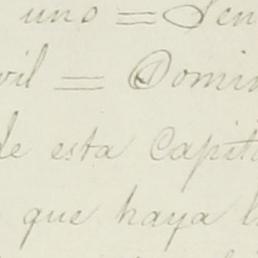 uno = Sen
vil = Domin
de esta Capita
que haya l